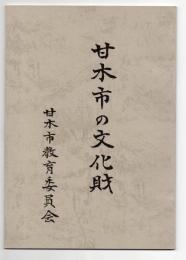 甘木市の文化財
甘木市教育委員会